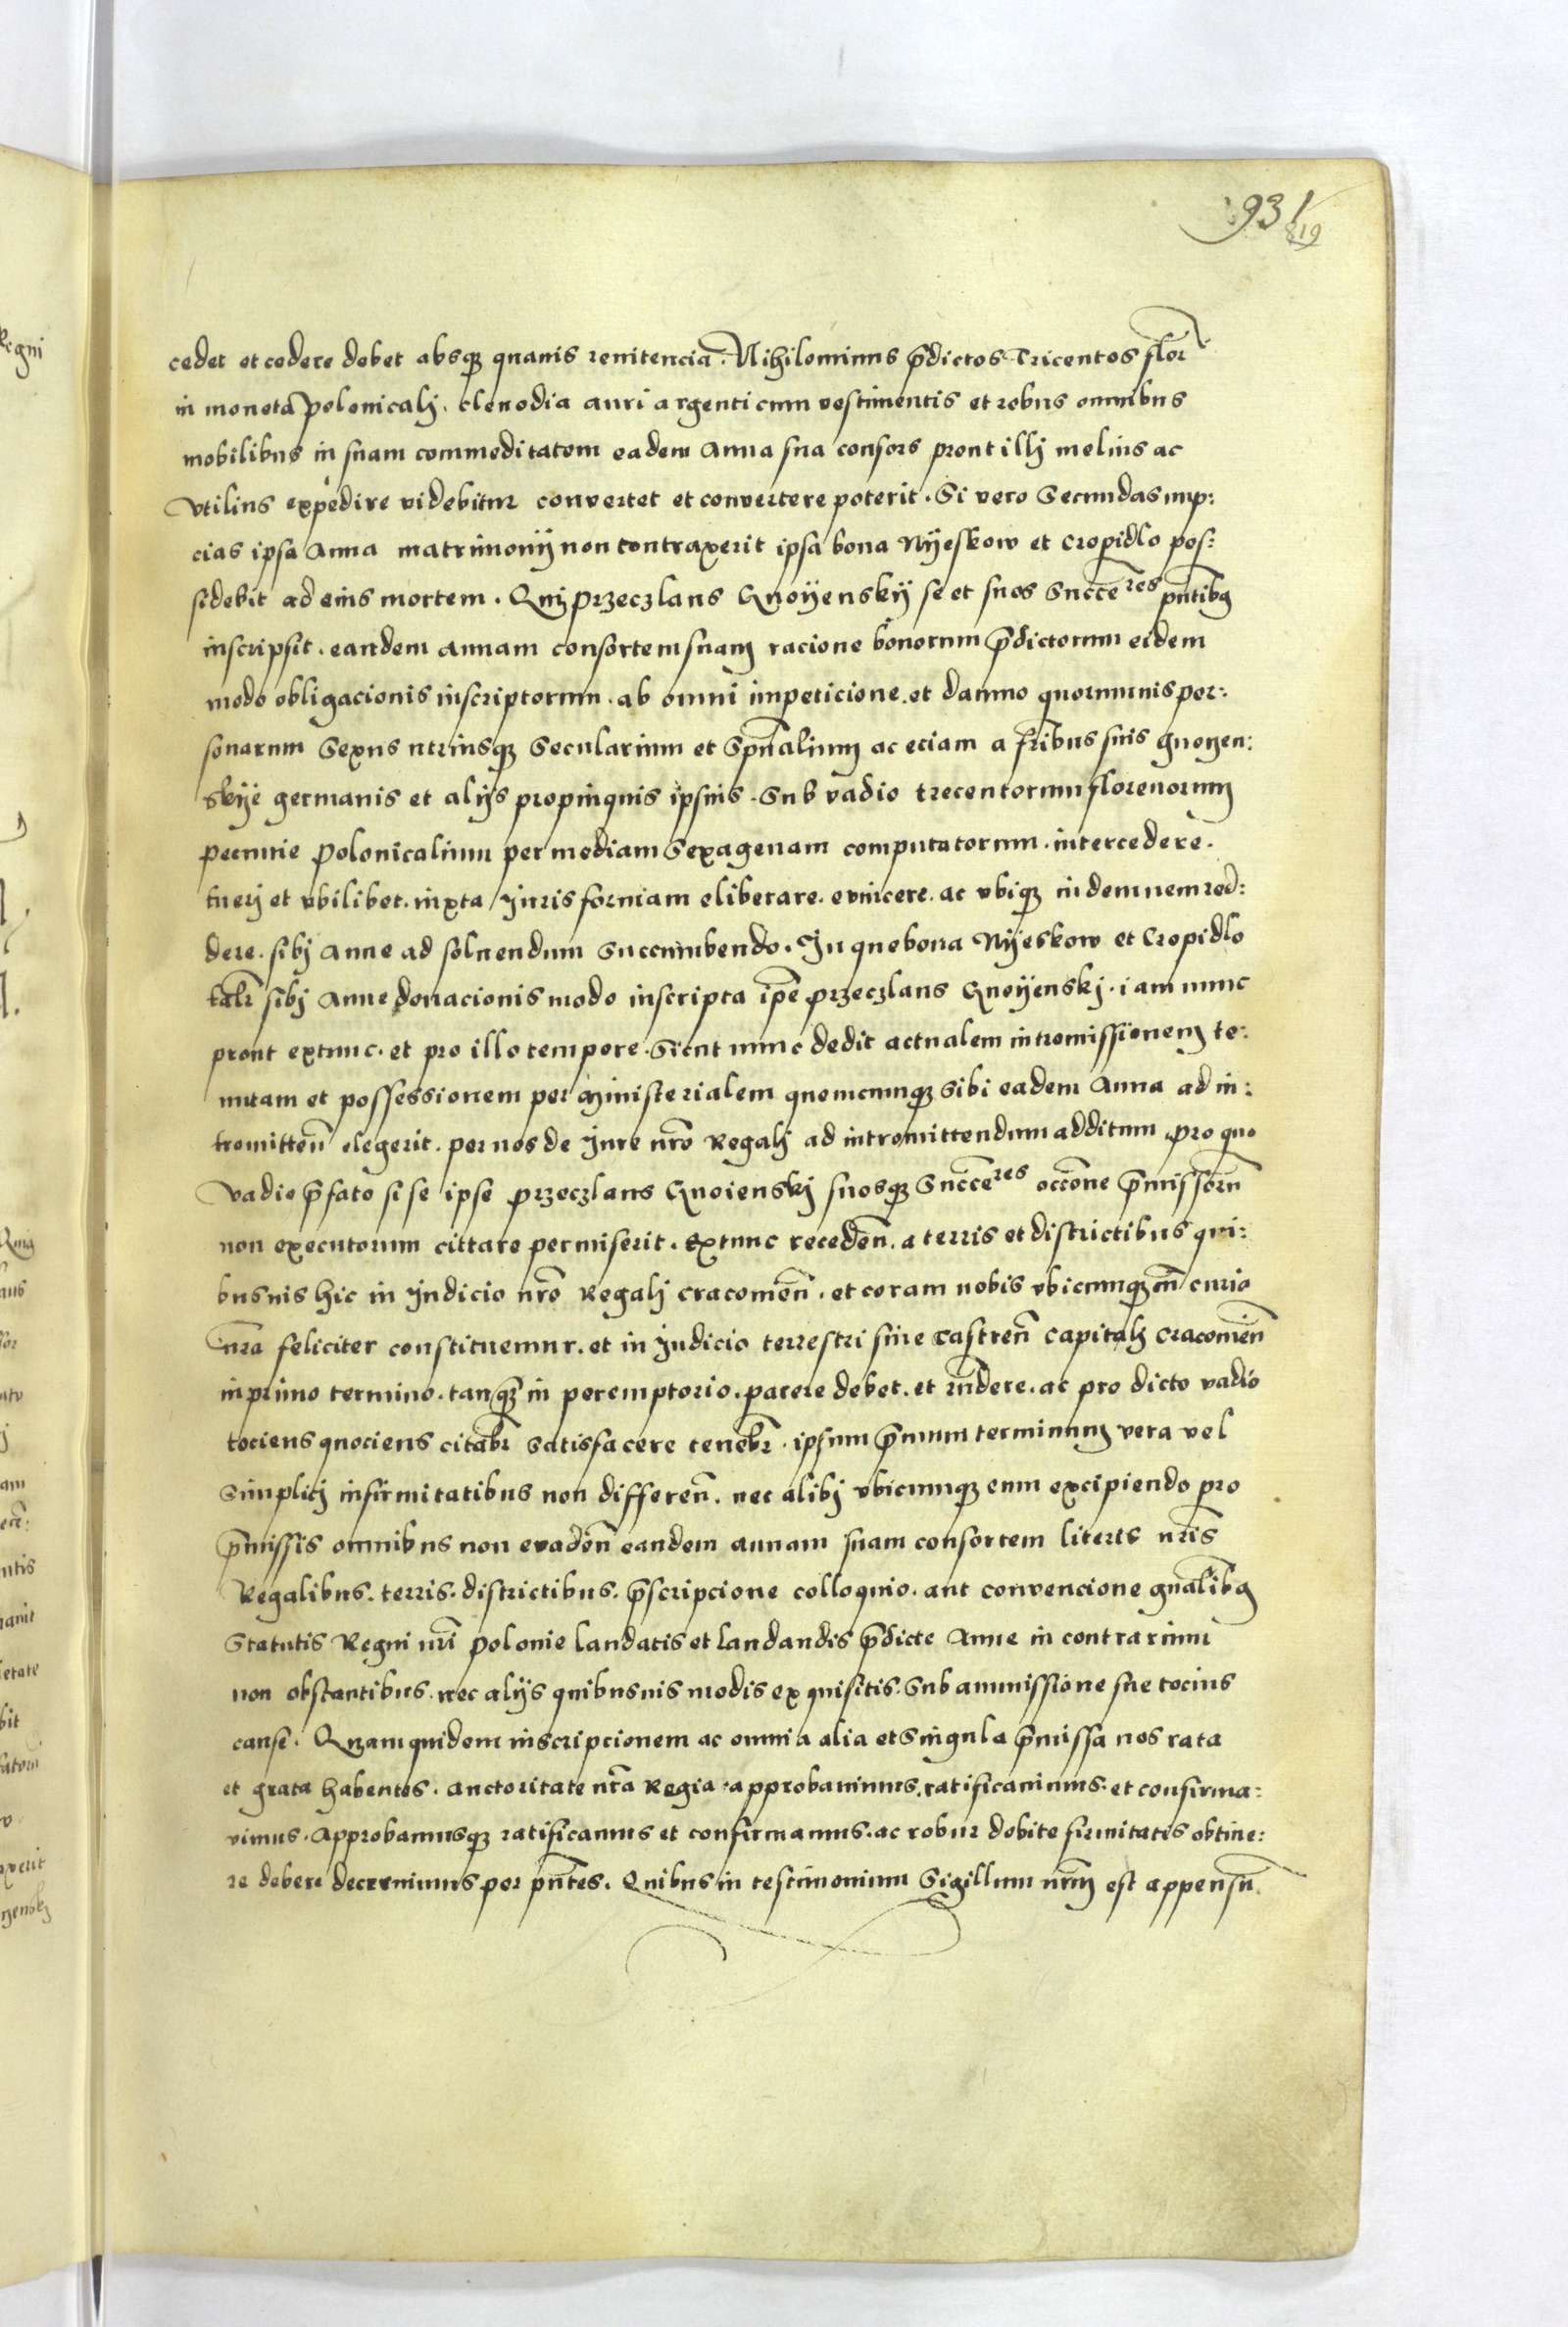 931
819
cedet et cedere debet absq quauis renitencia. Nihilominus p̄dictos Tricentos flor̄
in moneta polonicalj. clenodia auri argenti cum vestimentis et rebus omnibus
mobilibus in suam commoditatem eadem Anna sua consors prout illj melius ac
vtilius expedire videbitur convertet et convertere poterit. Si vero Secundas nup:
cias ipsa Anna matrimonij non contraxerit ipsa bona Nÿeskow et Cropidlo pos:
sidebit ad eius mortem. Quj Przeczlaus Gnoÿenskÿ se et suos Succc̄res pn̄tibq
inscripsit. eandem annam consortem suam racione bonorum p̄dictorum eidem
modo obligacionis inscriptorum. ab omni impeticione. et damno quorumuis per:
sonarum Sexus utriusq Secularium et Spūalium ac eciam a fr̄ibus suis gnoyen:
skÿe germanis et alijs propinquis ipsius. Sub vadio trecentorum florenorum
pecunie Polonicalium per mediam Sexagenam computatorum. intercedere.
tuerj et vbilibet. iuxta Juris formam eliberare. evincere. ac vbiq indemnem red:
dere. sibj Anne ad soluendum Succumbendo. In que bona Nÿeskow et Cropidlo
talr̄ sibj Anne donacionis modo inscripta ip̄e Przeczlaus Gnoÿenskj. iam nunc
prout extunc. et pro illo tempore. Sicut nunc dedit actualem intromissionem te:
nutam et possessionem per ministerialem quemcumq Sibi eadem Anna ad in:
tromitten̄ elegerit. per nos de Jure nr̄o Regalj ad intromittendum additum. pro quo
vadio p̄fato si se ipse Przeczlaus Gnoienskj suosq Succc̄res occōne p̄missorū
non executorum cittare permiserit. Extunc receden̄. a terris et districtibus qui:
busuis hic in Judicio nr̄o Regalj cracouien̄. et coram nobis vbicumq cū curio
nr̄a feliciter constituemur. et in Judicio terrestri siue castren̄ Capitalj cracouien̄
in primo termino. tanq̄ in peremptorio. parere debet. et rn̄dere. ac pro dicto vadio
tociens quociens citabr̄ satisfacere tenebr̄. ipsum p̄mum terminum vera vel
Simplicj infirmitatibus non differen̄. nec alibj vbicumq eum excipiendo pro
p̄missis omnibus non evaden̄ eandem annam suam consortem literis nr̄is
Regalibus. terris. districtibus. p̄scripcione colloquio. aut convencione gn̄alibq
Statutis Regni nr̄i Polonie laudatis et laudandis p̄dicte Anne in contrarium
non obstantibus. nec alijs quibusuis modis exquisitis. Sub ammissione sue tocius
cause. Quamquidem inscripcionem ac omnia alia et Singula p̄missa nos rata
et grata habentes. auctoritate nr̄a Regia. approbauimus. ratificauimus. et confirma:
vimus. Approbamusq ratificamus et confirmamus. ac robur debite firmitatis obtine:
re debere decernimus per pn̄tes. Quibus in testimonium Sigillum nr̄m est appensū.